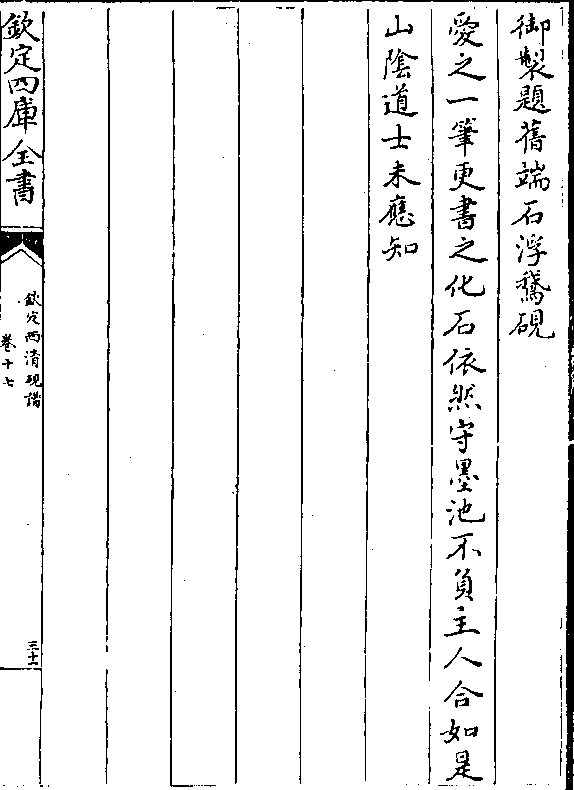 御製題舊端石浮鵞硯
愛之一筆更書之化石依然守墨池不負主人合如是
山隂道士未應知
欽定四庫全書
欽定西清硯譜
卷十七
三十一